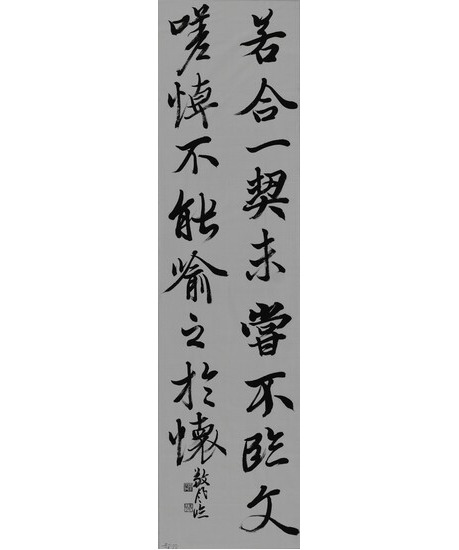 若合一契未嘗不臨文
嗟悼不能喻之於懷